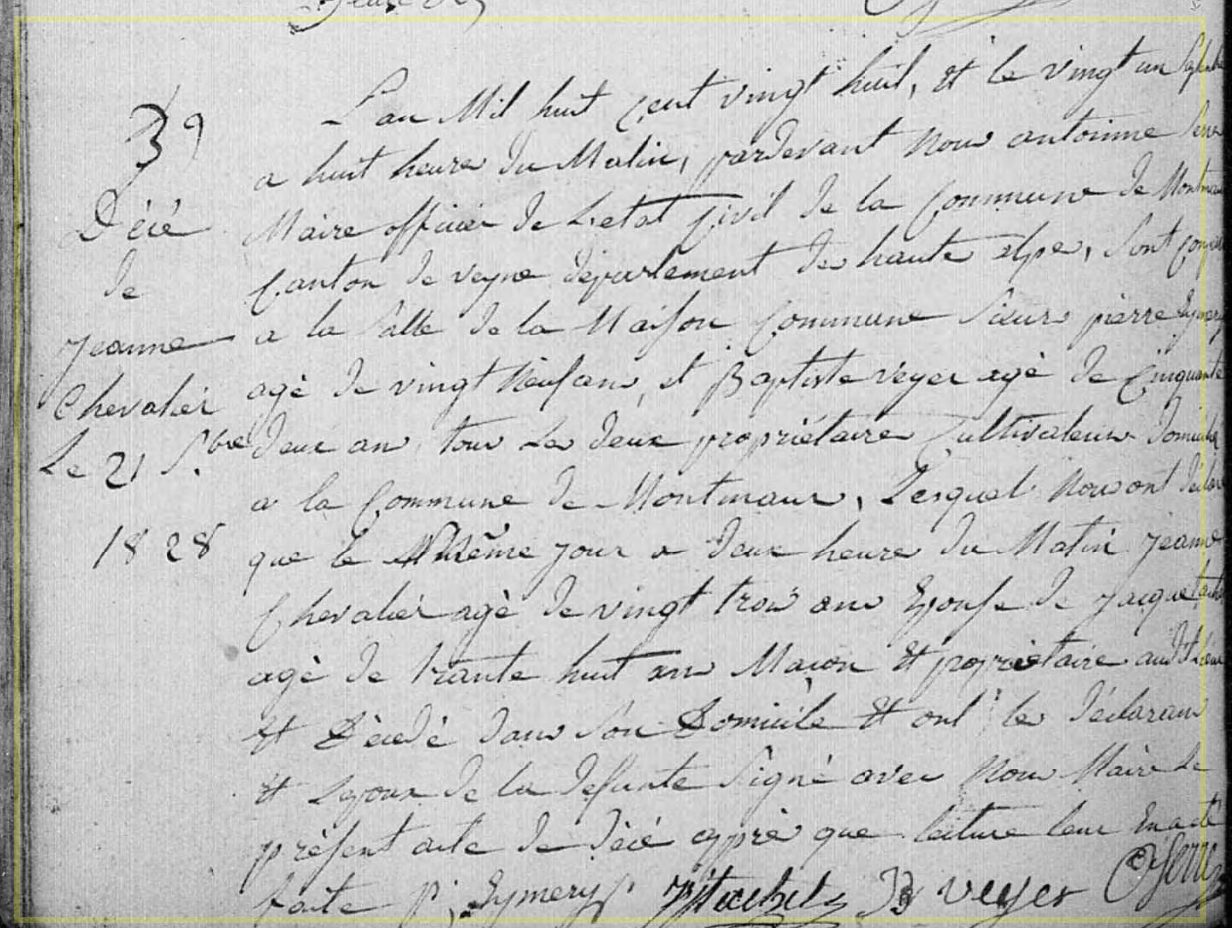 39
Décé
de
Jeanne
Chevalier
Le 21 7.bre
1828
L'an Mil huit cent vingt huit, et le vingt un
a huit heure du Matin, pardevant Nous antoinne
Maire officier de L'etat Civil de la Commune de
Canton de veyne departement de haute alpe, Sont
a la Salle de la Maison Commune Sieurs pierre
agé de vingt Neuf ans, et Baptiste veyer agé de Cinquante
deux an, tous Les deux propriétaire Cultivateur
a la Commune de Montmaur, Lesquel Nous ont
que le Même jour a deux heure du Matin Jeanne
Chevalier agé de vingt trois ans Epouse de Jacque
agé de trante huit ans Macon et propriétaire audit
et Décédé dans Son Domicile et ont les déclarans
et Lepoux de la defunte Signé avec Nous Maire Le
présent acte de décé apprè que lecture leur En a été
faite P. Eymery B veyer